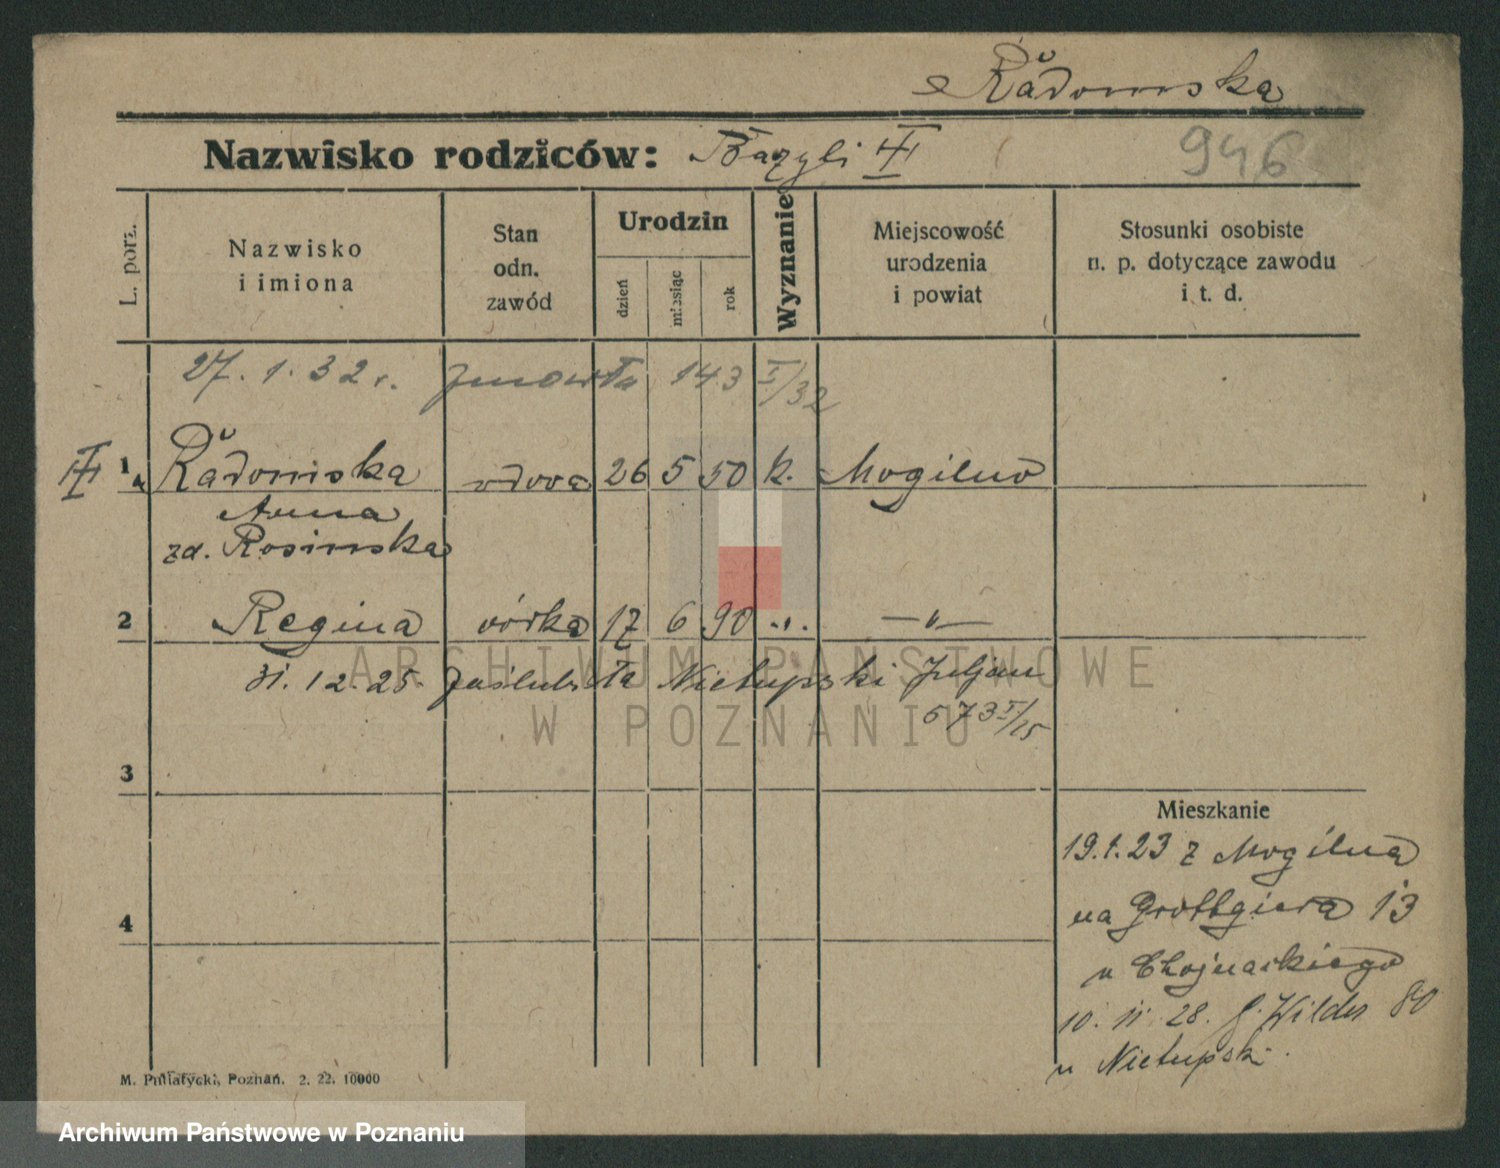 Radomska
Nazwisko rodziców: Bazyli
946
L. porz.
Nazwisko
i imiona
Stan
odn.
zawód
Urodzin
dzień
miesiąc
rok
Wyznanie
Miejscowość
urodzenia
i powiat
Stosunki osobiste
n. p. dotyczące zawodu
i t. d.
27. 1. 32 r. zmarła 143 I/32
1 Radomska wdowa 26 5 50 k. Mogilno
Anna
zd. Rosinska
2 Regina córka 17 6 90 „ — „ —
31. 12. 25 zaślubiła Nietupski Juljan
673
3
Mieszkanie
19.1.23 z Mogilna
na Grottgiera 13
4
u Chojnackiego
10. 11. 28. G. Wilda 80
u Nietupski.
M. Putiatycki, Poznań. 2. 22. 10000
ARCHIWUM PAŃSTWOWE
W POZNANIU
Archiwum Państwowe w Poznaniu